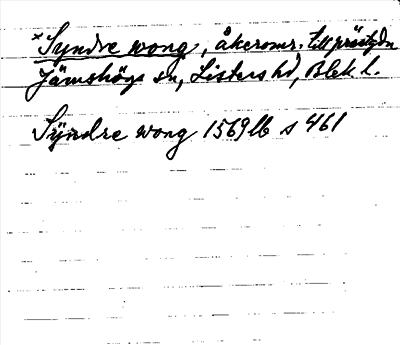 *Syndre wong, åkeromr. till prästgdn
Jämshögs sn, Listers hd, Blek. l.
Syndre wong 1569 lb s 461